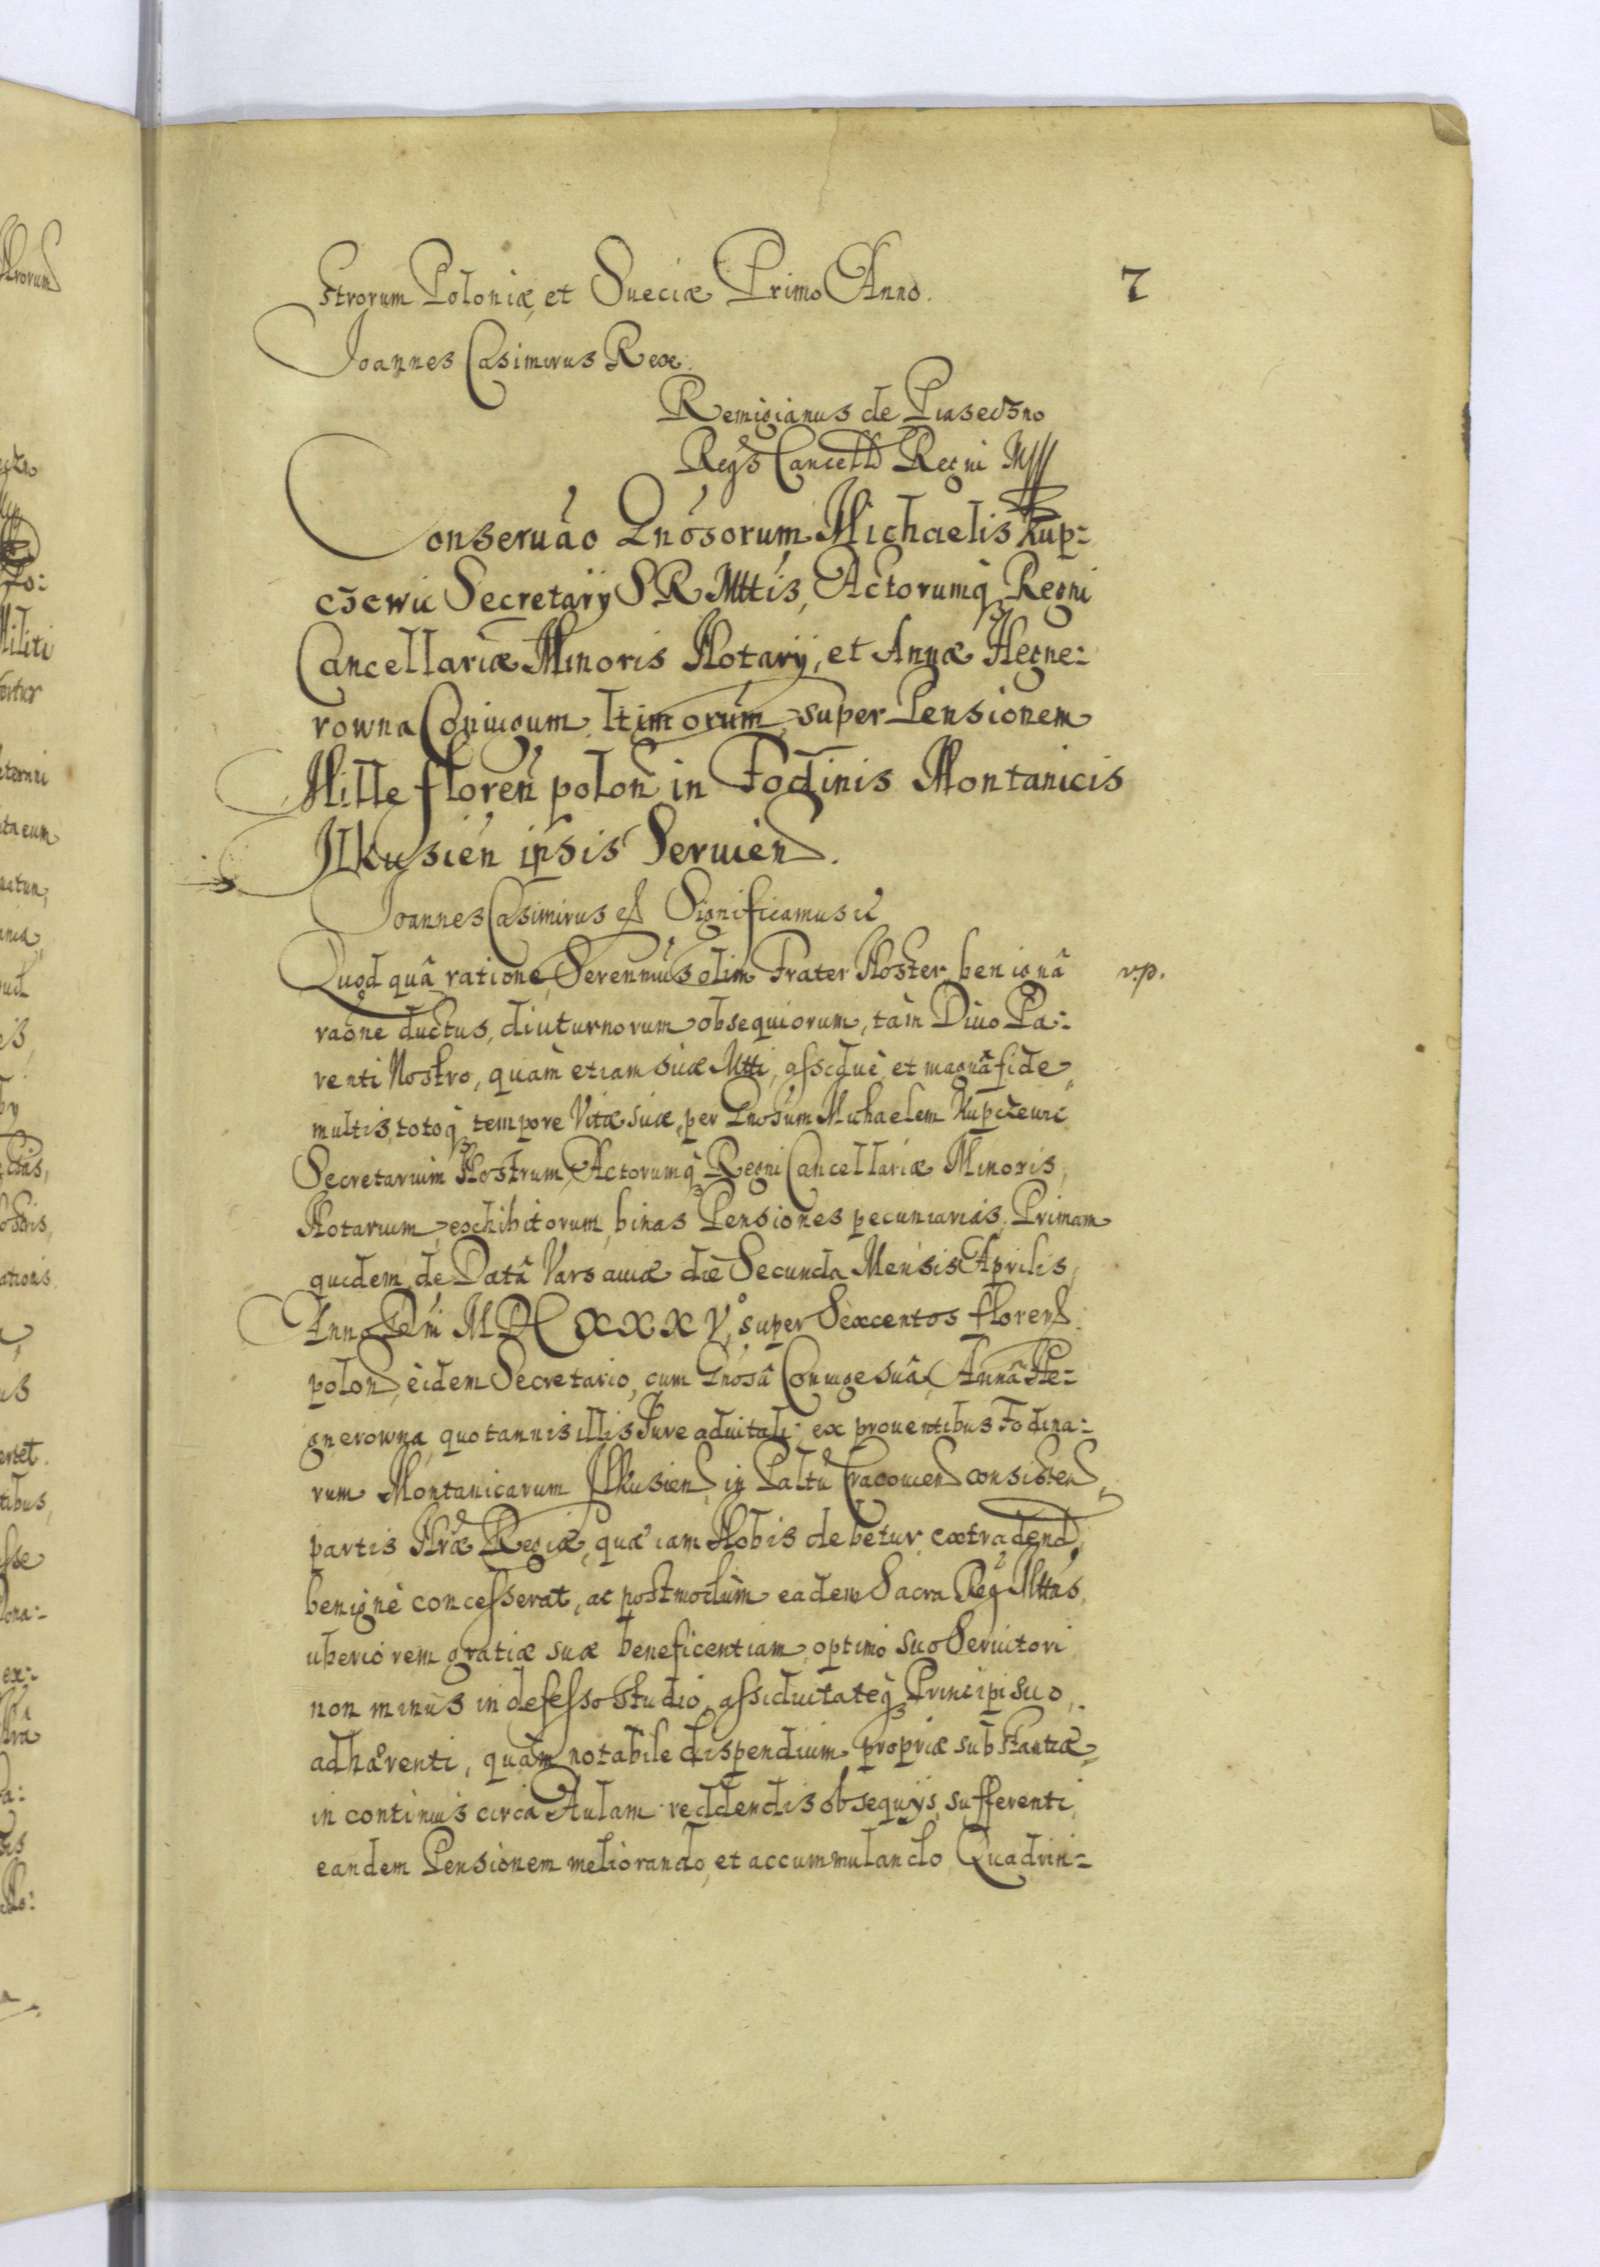 7
strorum Poloniæ, et Sueciæ Primo Anno.
Joannes Casimirus Rex.
Remigianus de Piaseczno
Regs Cancell Regni
Conseruao Gnosorum Michaelis Kup-
czewic Secretarÿ S R Mttis, Actorumq Regni
Cancellariæ Minoris Notarÿ, et Annæ Hegne-
rowna Coniugum ltimorum, super Pensionem
Mille floren polon in Fodinis Montanicis
Ilkusien ipsis Seruien.
Joannes Casimirus et Significamus ic
Quod quâ ratione, Serennus olim Frater Noster, benignâ v.p.
raone ductus, diuturnorum obsequiorum, tàm Diuo Pa-
renti Nostro, quàm etiam suæ Mtti, assiduè, et magnâ fide
multis, totoq tempore Vitæ suæ, per Gnosum Michaelem Kupczewic
Secretarium Nostrum, Actorumq Regni Cancellariæ Minoris,
Notarium, exhibitorum, binas Pensiones pecuniarias, Primam
quidem, de Datâ Varsauiæ die Secunda Mensis Aprilis,
Anno Dni MDCXXXV°, super Sexcentos floren
polon, eidem Secretario, cum Gnosâ Coniuge suâ, Annâ He-
gnerowna, quotannis illis Jure aduitali, ex prouentibus Fodina-
rum Montanicarum Ilkusien, in Paltu Cracouien consisten,
partis Nræ Regiæ, quæ iam Nobis debetur, extradend,
benignè concesserat, ac postmodùm eadem Sacra Reg Mttas,
uberiorem gratiæ suæ beneficentiam, optimo suo Seruitori
non minùs indefesso studio, assiduitateq Principi suo,
adhærenti, quàm notabile dispendium propriæ substantiæ
in continuis circa Aulam reddendis obsequÿs, sufferenti,
eandem Pensionem meliorando, et accummulando, Quadrin-